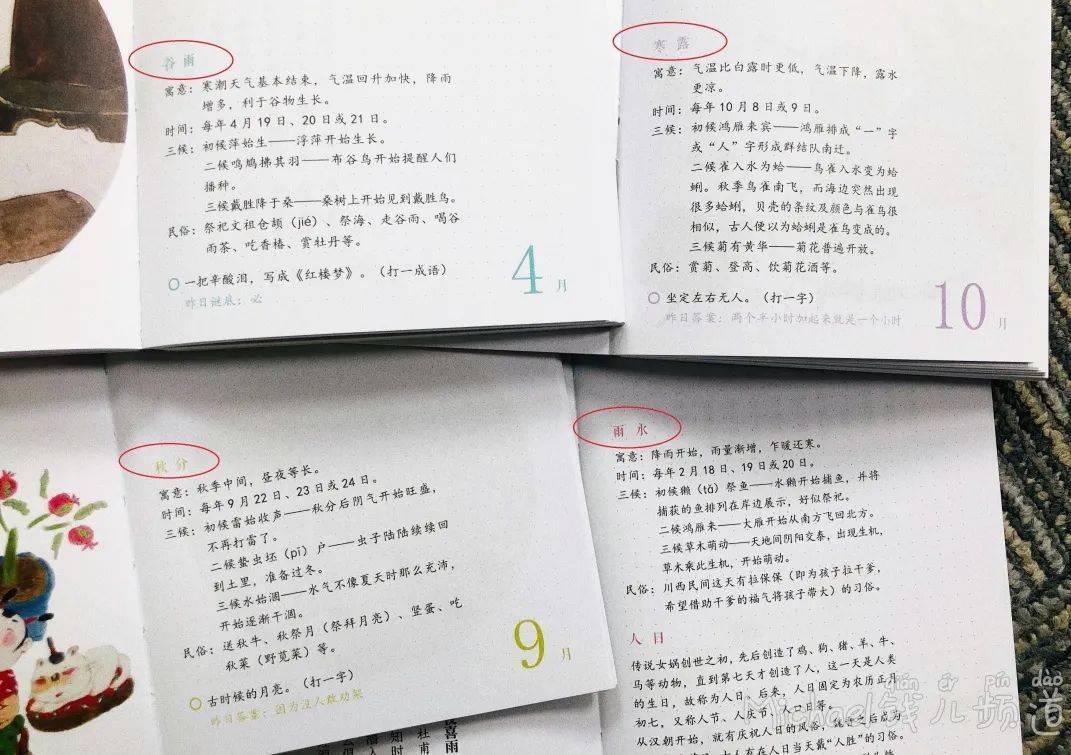 谷雨
寓意：寒潮天气基本结束，气温回升加快，降雨
增多，利于谷物生长。
时间：每年4月19日、20日或21日。
三候：初候萍始生——浮萍开始生长。
二候鸣鸠拂其羽——布谷鸟开始提醒人们
播种。
三候戴胜降于桑——桑树上开始见到戴胜鸟。
民俗：祭祀文祖仓颉（jié）、祭海、走谷雨、喝谷
雨茶、吃香椿、赏牡丹等。
一把辛酸泪，写成《红楼梦》。（打一成语）
昨日谜底：必
4月
寒露
寓意：气温比白露时更低，气温下降，露水
更凉。
时间：每年10月8日或9日。
三候：初候鸿雁来宾——鸿雁排成“一”字
或“人”字形成群结队南迁。
二候雀入水为蛤——鸟雀入水变为蛤
蜊。秋季鸟雀南飞，而海边突然出现
很多蛤蜊，贝壳的条纹及颜色与雀鸟很
相似，古人便以为蛤蜊是雀鸟变成的。
三候菊有黄华——菊花普遍开放。
民俗：赏菊、登高、饮菊花酒等。
坐定左右无人。（打一字）
昨日答案：两个半小时加起来就是一个小时
10月
秋分
寓意：秋季中间，昼夜等长。
时间：每年9月22日、23日或24日。
三候：初候雷始收声——秋分后阴气开始旺盛，
不再打雷了。
二候蛰虫坯（pī）户——虫子陆陆续续回
到土里，准备过冬。
三候水始涸——水气不像夏天时那么充沛，
开始逐渐干涸。
民俗：送秋牛、秋祭月（祭拜月亮）、竖蛋、吃
秋菜（野苋菜）等。
古时候的月亮。（打一字）
昨日答案：因为没人敢劝架
9月
雨水
寓意：降雨开始，雨量渐增，乍暖还寒。
时间：每年2月18日、19日或20日。
三候：初候獭（tǎ）祭鱼——水獭开始捕鱼，并将
捕获的鱼排列在岸边展示，好似祭祀。
二候鸿雁来——大雁开始从南方飞回北方。
三候草木萌动——天地间阴阳交泰，出现生机，
草木乘此生机，开始萌动。
民俗：川西民间这天有拉保保（即为孩子拉干爹，
希望借助干爹的福气将孩子带大）的习俗。
人日
传说女娲创世之初，先后创造了鸡、狗、猪、羊、牛、
马等动物，直到第七天才创造了人，这一天是人类
的生日，故称为人日。后来，人日固定为农历正月
初七，又称人节、人庆节、人口日等。
从汉朝开始，就有庆祝人日的风俗，魏晋之后成为
人在人日当天戴“人胜”的习俗。
喜雨
杜甫
知时
Michael钱儿频道